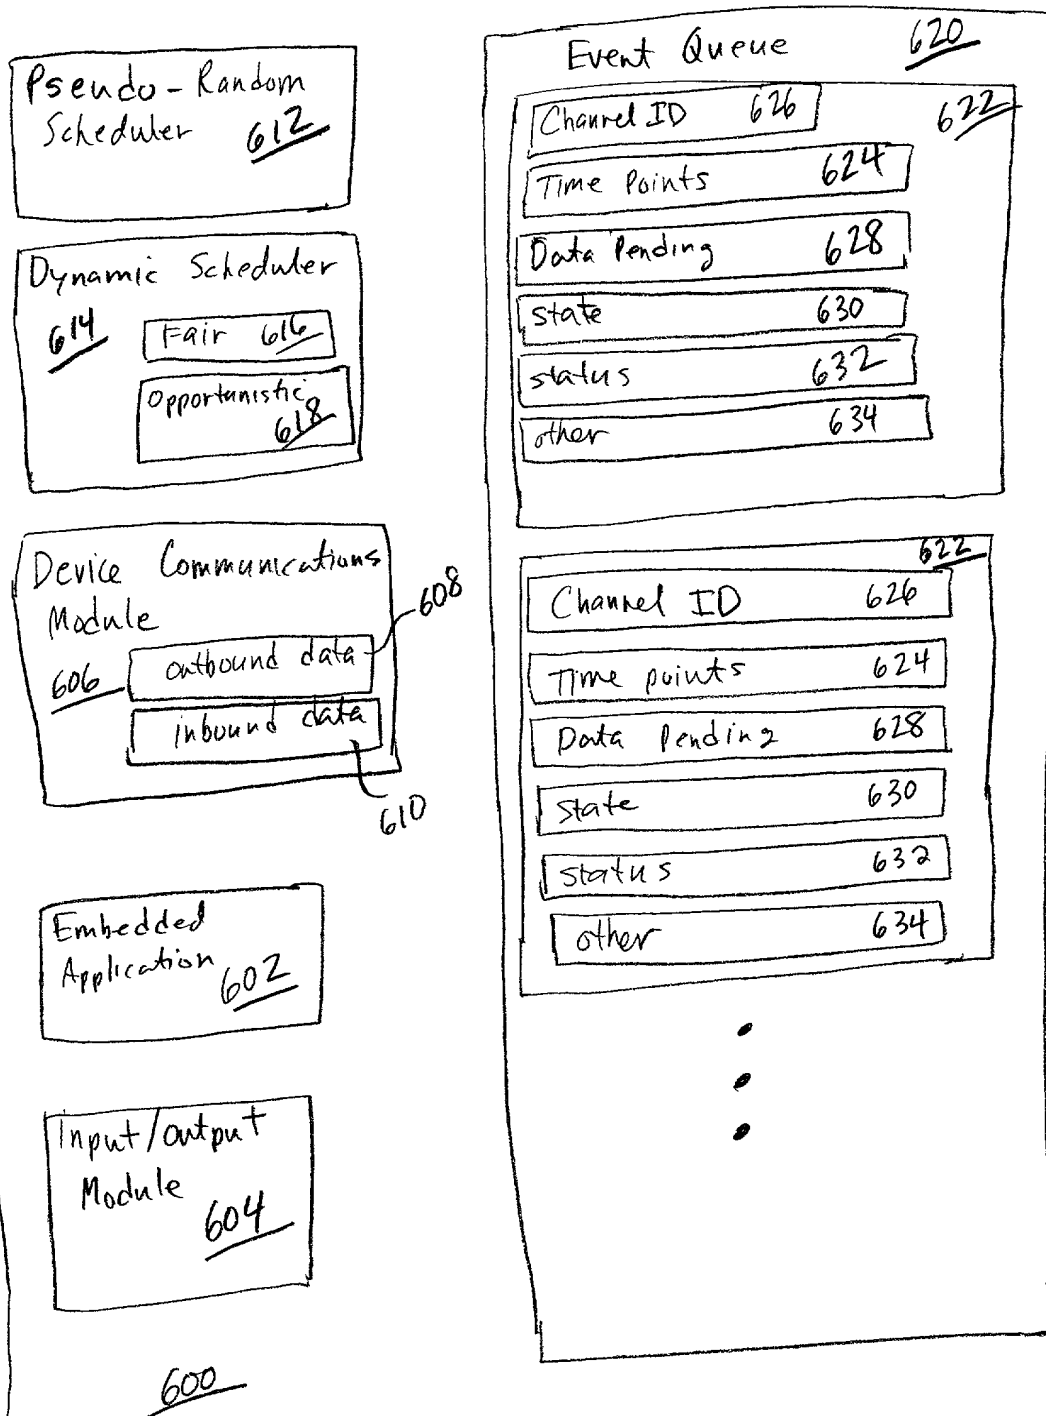 Pseudo-Random
Scheduler 612
Dynamic Scheduler
614
Fair 616
Opportunistic
618
Device Communications
Module
606
outbound data
608
inbound data
610
Embedded
Application
602
Input/output
Module
604
600
Event Queue 620
622
Channel ID 626
Time Points 624
Data Pending 628
state 630
status 632
other 634
622
Channel ID 626
Time points 624
Data Pending 628
state 630
status 632
other 634